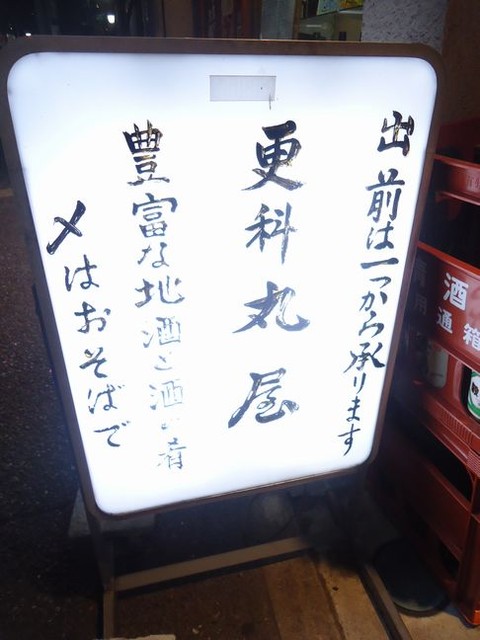 出前は一つから承ります
更科丸屋
豊富な地酒と酒の肴
〆はおそばで
酒
通箱